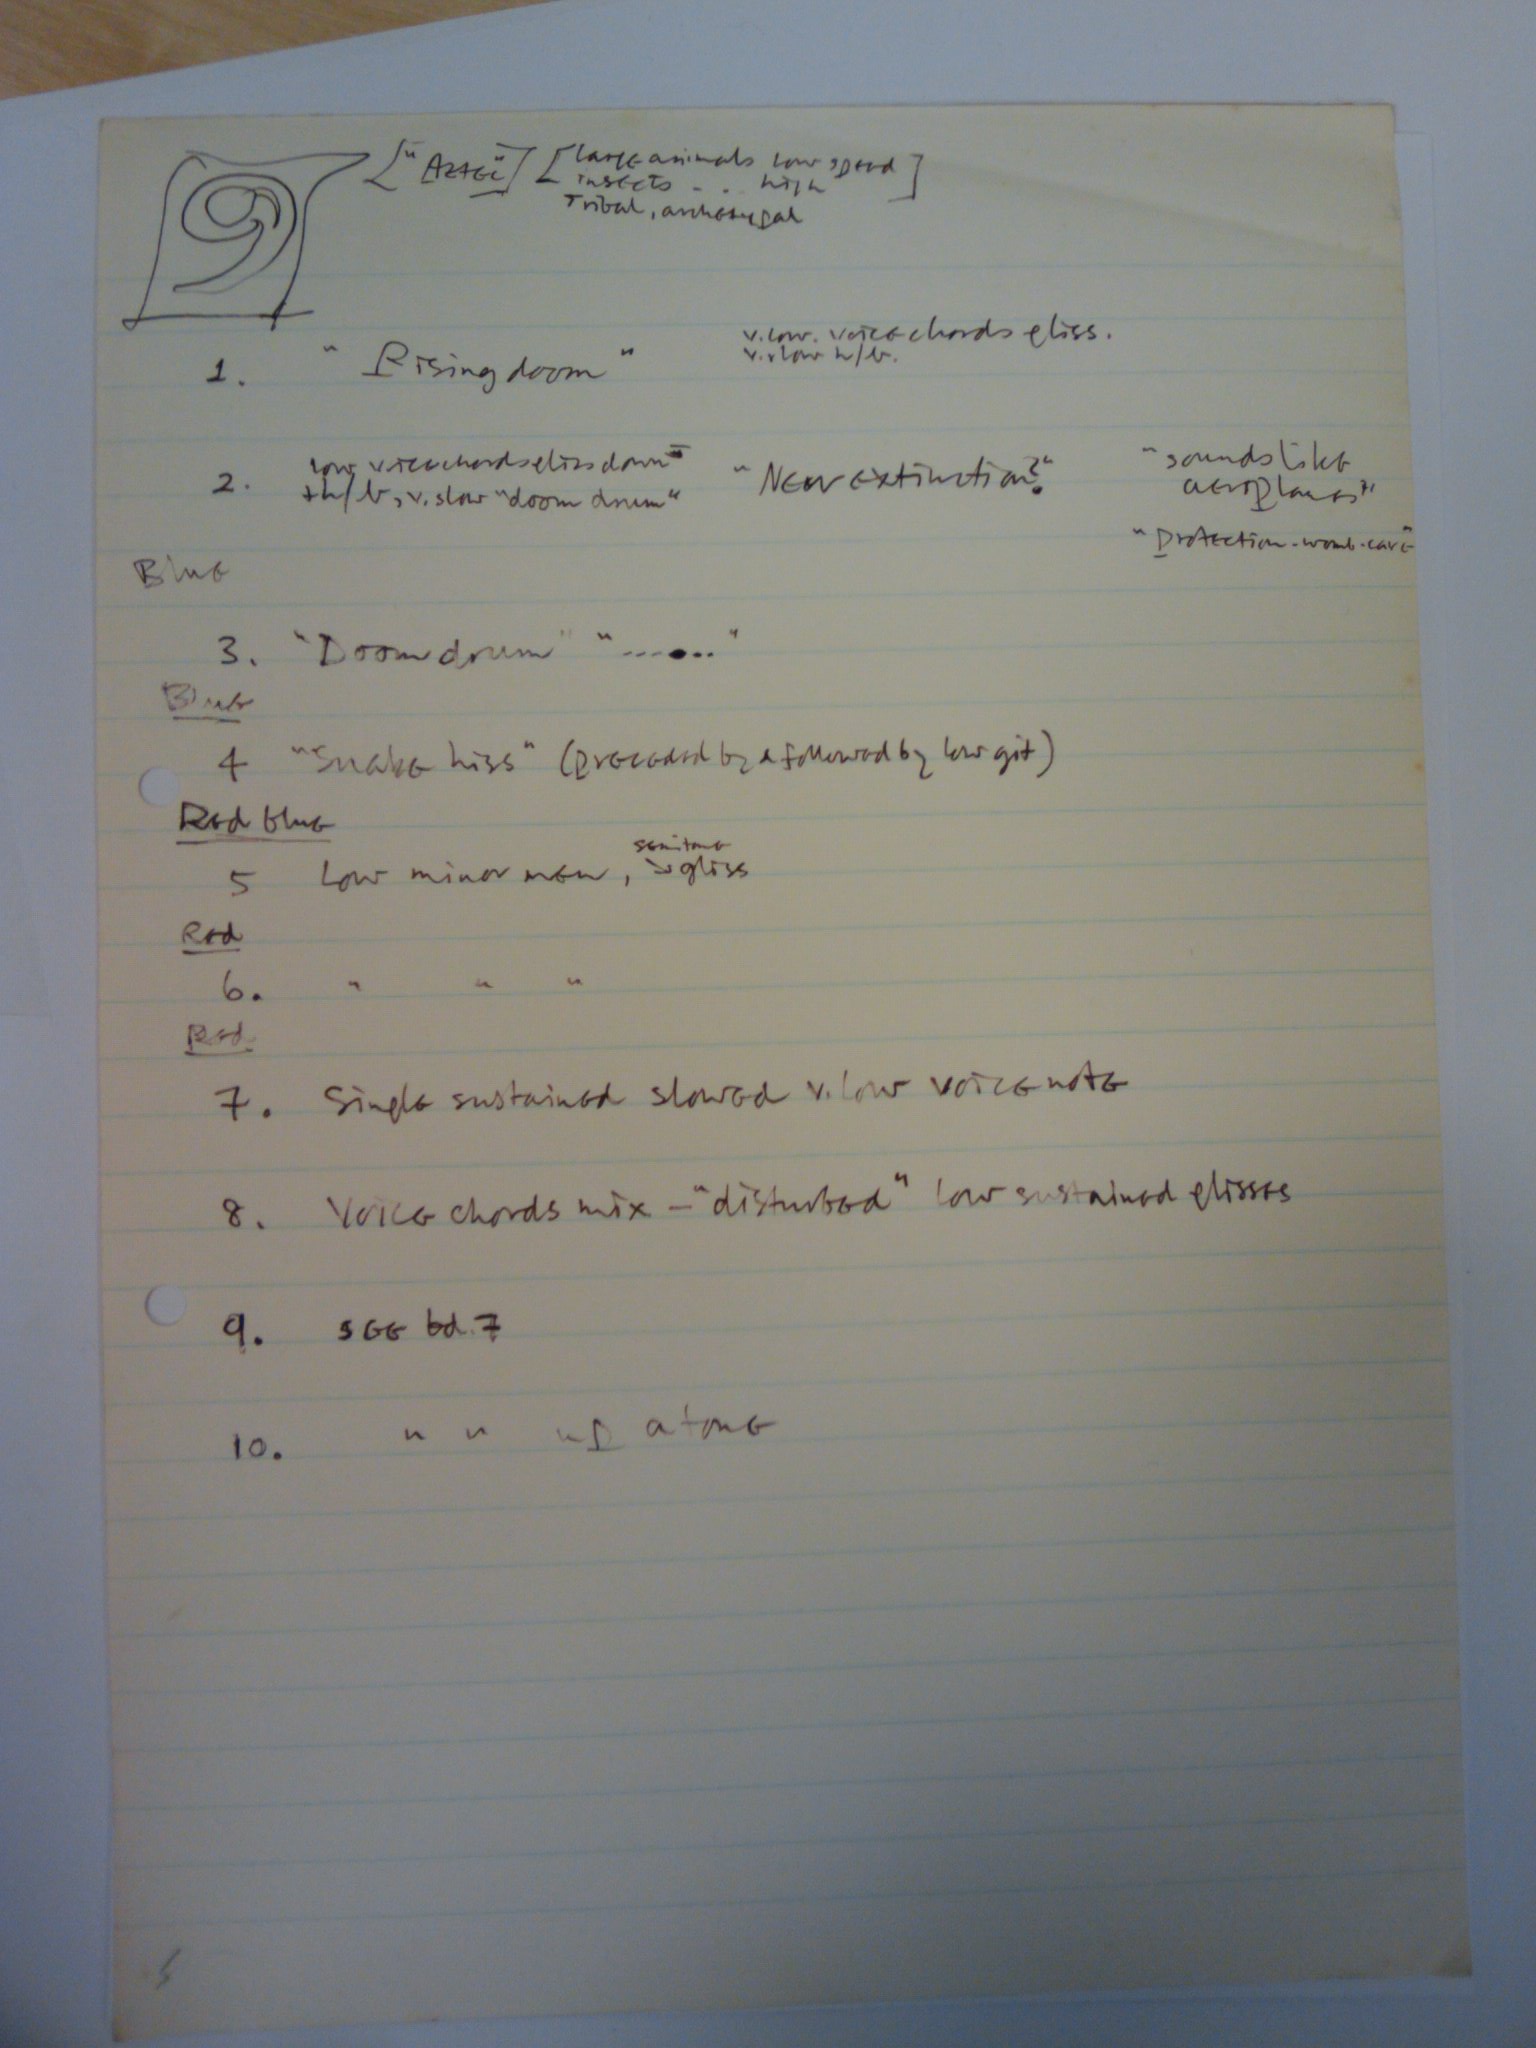 ["Aztec"] [large animals low speed
insects . . high]
Tribal, archetypal
v. low. voice chords gliss.
1. "Rising doom" v. slow h/b.
low voice chords gliss down "Near extinction?" "sounds like
2. + h/b, v. slow "doom drum" aeroplanes"
"Protection-womb-care"
Blue
3. "Doom drum" "...•.."
Blue
4 "Snake hiss" (preceded by & followed by low git)
Red blue
semitone
5 Low minor new, gliss
Red
6. " " "
Red
7. Single sustained slowed v. low voice note
8. Voice chords mix - "disturbed" low sustained glisses
9. see bd. 7
10. " " up a tone